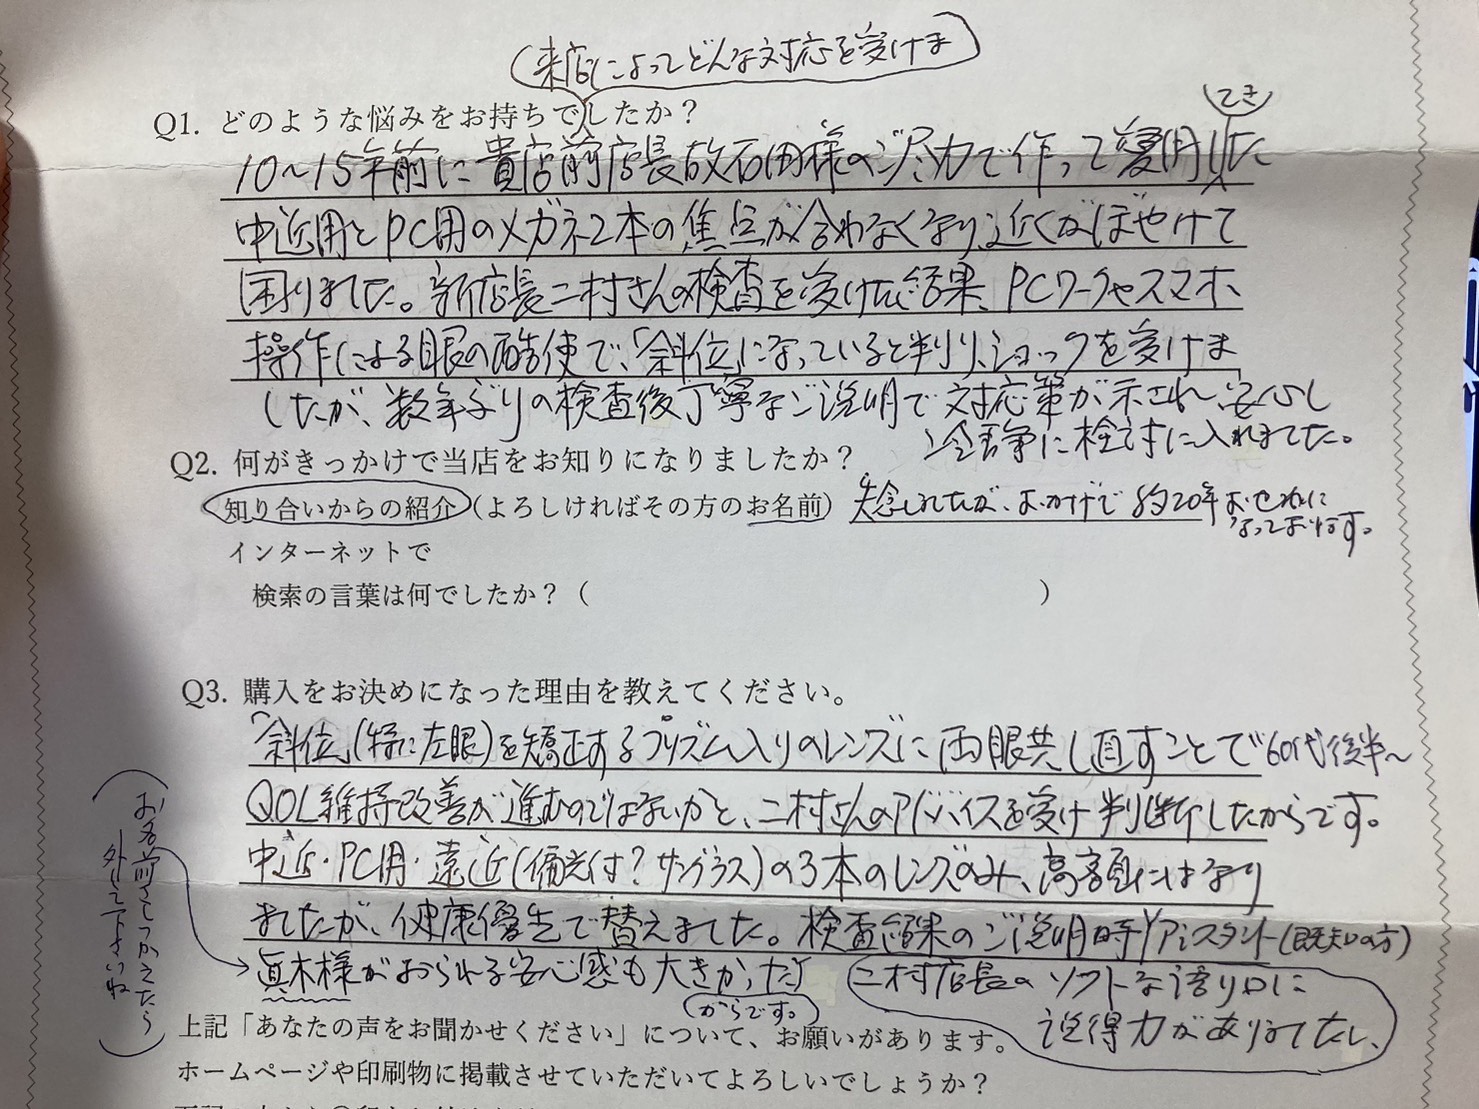 来店によってどんな対応を受けま
Q1. どのような悩みをお持ちでしたか？
てき
10〜15年前に貴店前店長故石田様のご尽力で作って愛用した
中近用とPC用のメガネ2本の焦点が合わなくなり、近くがぼやけて
困りました。新店長二村さんの検査を受けた結果、PCワークやスマホ
操作による眼の酷使で、「斜位」になっていると判り、ショックを受けま
したが、数年ぶりの検査後丁寧なご説明で対応策が示され、安心し
冷静に検討に入れました。
Q2. 何がきっかけで当店をお知りになりましたか？
知り合いからの紹介（よろしければその方のお名前） 失念しましたが、おかげで約20年お世話に
なっております。
インターネットで
検索の言葉は何でしたか？（ ）
Q3. 購入をお決めになった理由を教えてください。
「斜位」(特に左眼)を矯正するプリズム入りのレンズに両眼共し直すことで60代後半〜
QOL維持改善が進むのではないかと、二村さんのアドバイスを受け判断したからです。
中近・PC用・遠近(偏光付？サングラス)の3本のレンズのみ、高額にはなり
ましたが、健康優先で替えました。検査結果のご説明時アシスタント(既知の方)
眞木様がおられる安心感も大きかった
からです。
二村店長のソフトな語り口に
説得力がありましたし、
お名前さしつかえたら
外して下さいね
上記「あなたの声をお聞かせください」について、お願いがあります。
ホームページや印刷物に掲載させていただいてよろしいでしょうか？